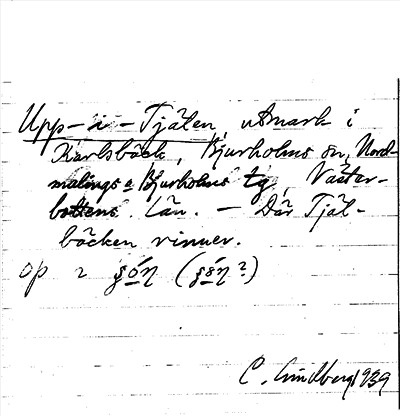 Upp-i-Tjälen, utmark i
Karlsbäck, Bjurholms sn, Nord-
malings o Bjurholms tg, Väster-
bottens Län. – Där Tjäl-
bäcken rinner.
op
C. Lindberg 1939